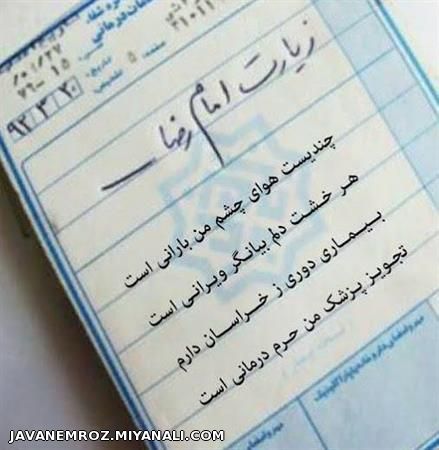 صفحه ۵
تاریخ:
۹۲ ۳ ۲۰
زیارت امام رضا
چندیست هوای چشم من بارانی است
هر خشت دلم بیانگر ویرانی است
بیماری دوری ز خراسان دارم
تجویز پزشک من حرم درمانی است
JAVANEMROZ.MIYANALI.COM